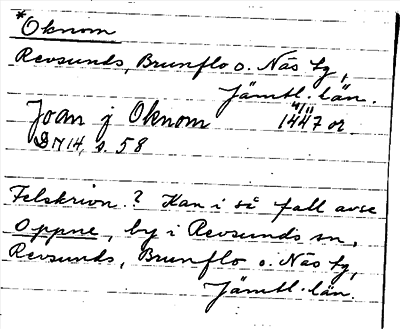 *Oknom
Revsunds, Brunflo o. Näs tg,
Jämtl. län.
Joan j Oknom 4/11 1447 or.
DN 14, s. 58
Felskrivn.? Kan i så fall avse
Oppne, by i Revsunds sn,
Revsunds, Brunflo o. Näs tg,
Jämtl. län.